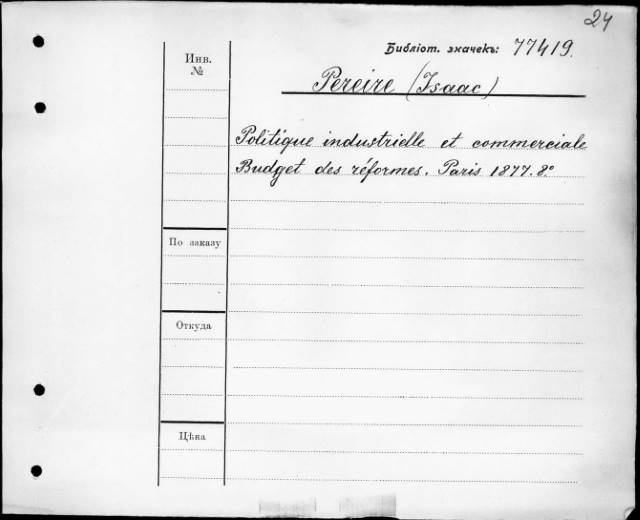 24
Библіот. значекъ: 77419.
Инв.
№
Pereire (Isaac)
Politique industrielle et commerciale
Budget des réformes. Paris 1877. 8º
По заказу
Откуда
Цѣна